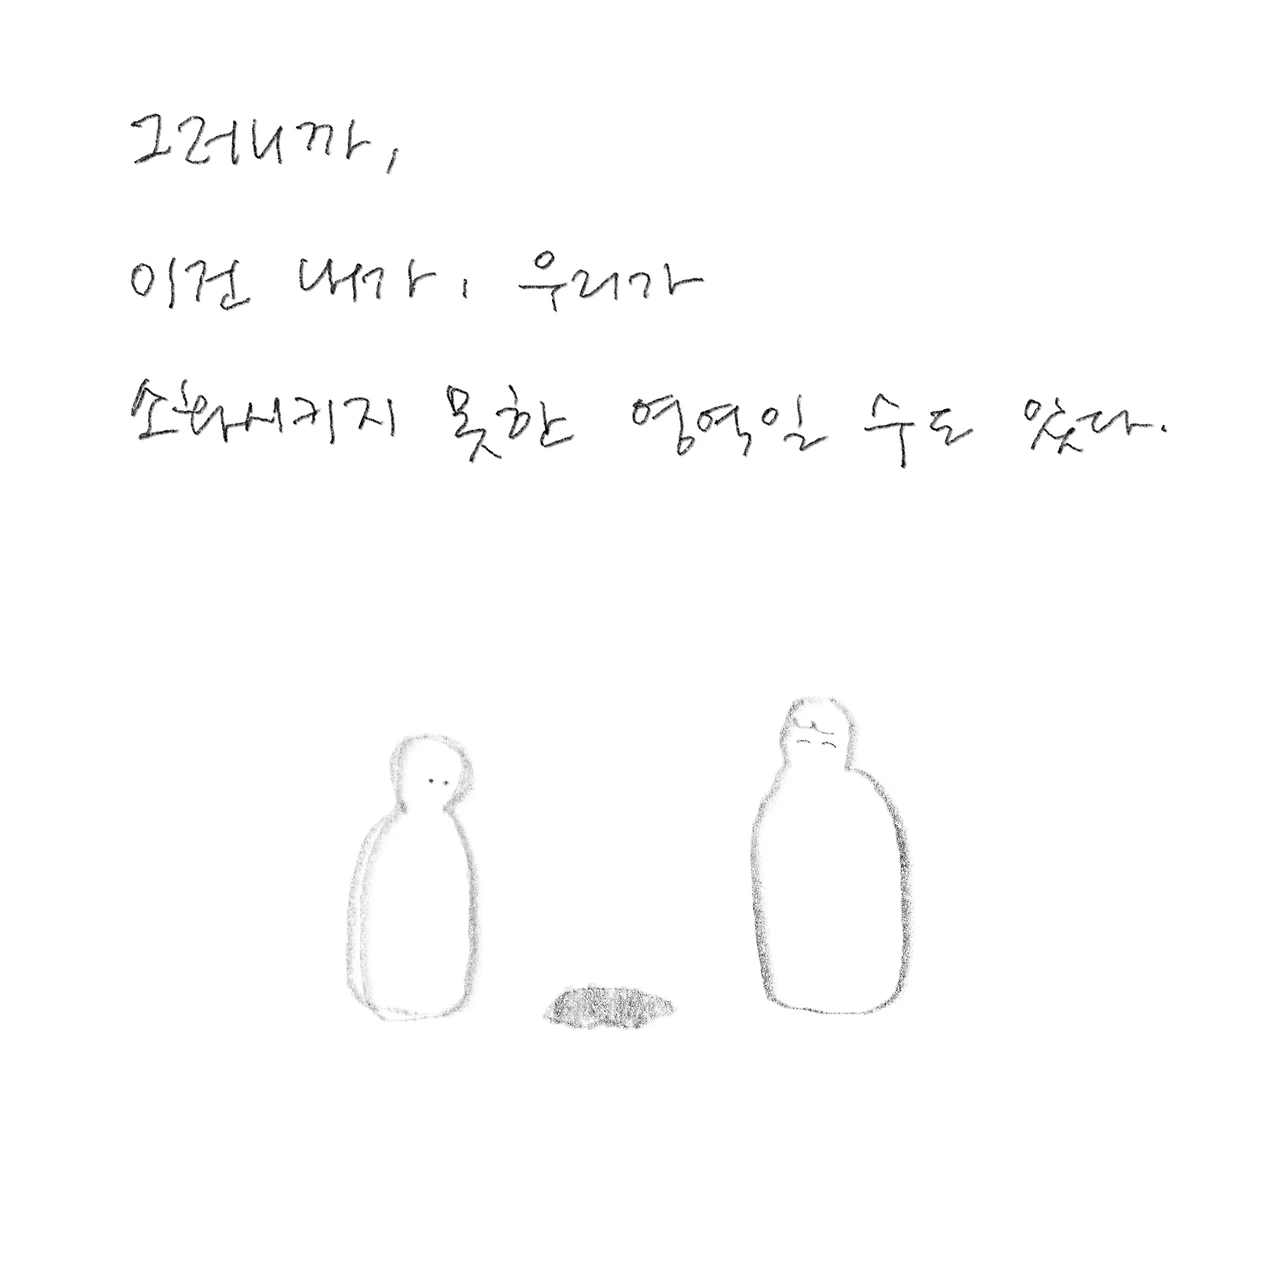 그러니까,
이건 내가, 우리가
소화시키지 못한 영역일 수도 있다.